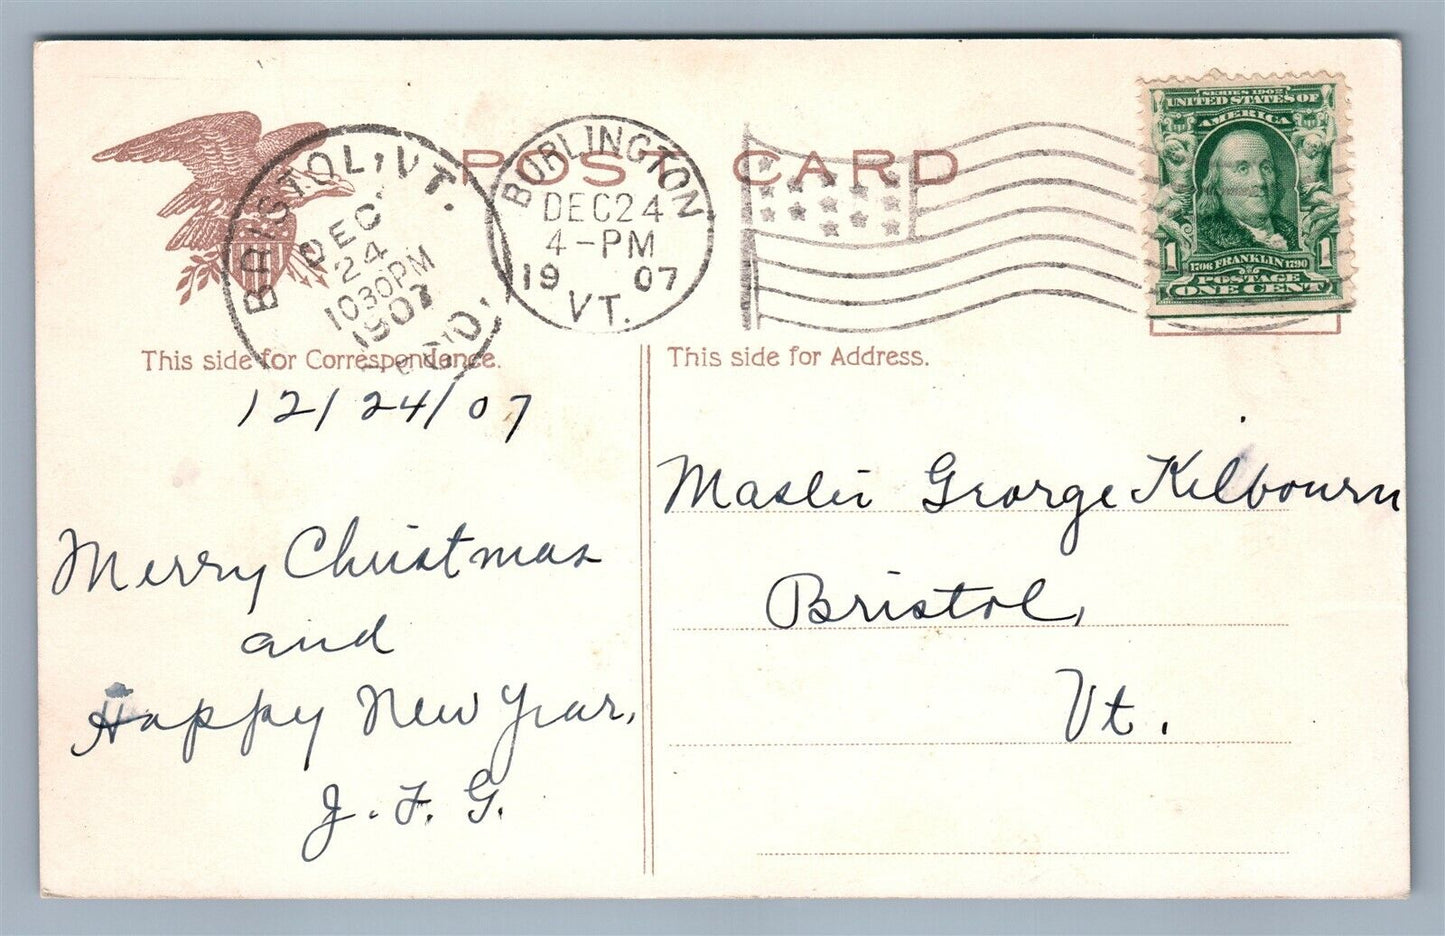 POST CARD
BRISTOL, VT.
DEC
24
1030PM
1907
REC'D.
BURLINGTON
DEC 24
4-PM
19 07
VT.
SERIES 1902
UNITED STATES OF
AMERICA
1 1
1706 FRANKLIN 1790
POSTAGE
ONE CENT
This side for Correspondence.
12/24/07
Merry Christmas
and
Happy New Year,
J. F. G.
This side for Address.
Master George Kilbourn
Bristol,
Vt.